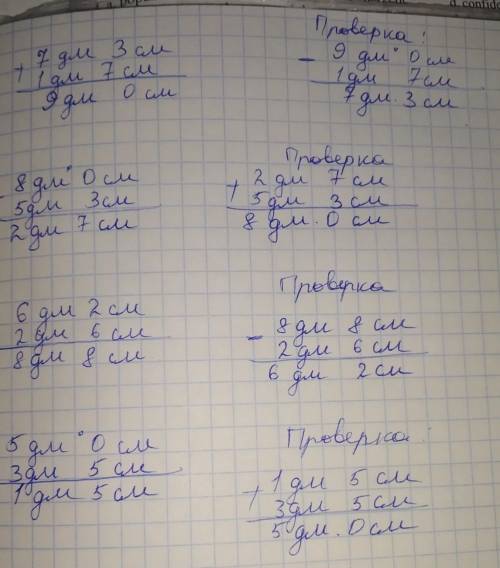 Проверка:
+ 7 дм 3 см
1 дм 7 см
9 дм 0 см
- 9 дм 0 см
1 дм 7 см
7 дм. 3 см
- 8 дм 0 см
5 дм 3 см
2 дм 7 см
Проверка
+ 2 дм 7 см
5 дм 3 см
8 дм. 0 см
6 дм 2 см
2 дм 6 см
8 дм 8 см
Проверка
- 8 дм 8 см
2 дм 6 см
6 дм 2 см
5 дм 0 см
3 дм 5 см
1 дм 5 см
Проверка:
+ 1 дм 5 см
3 дм 5 см
5 дм. 0 см